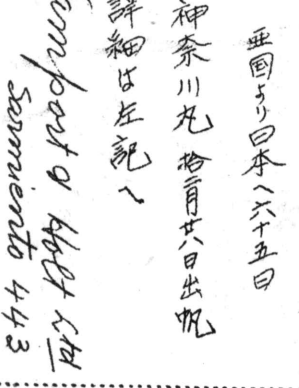 亜国より日本へ六十五日
神奈川丸 拾二月廿八日出帆
詳細は左記へ
Lamport & Holt Ltd
Sarmiento 443